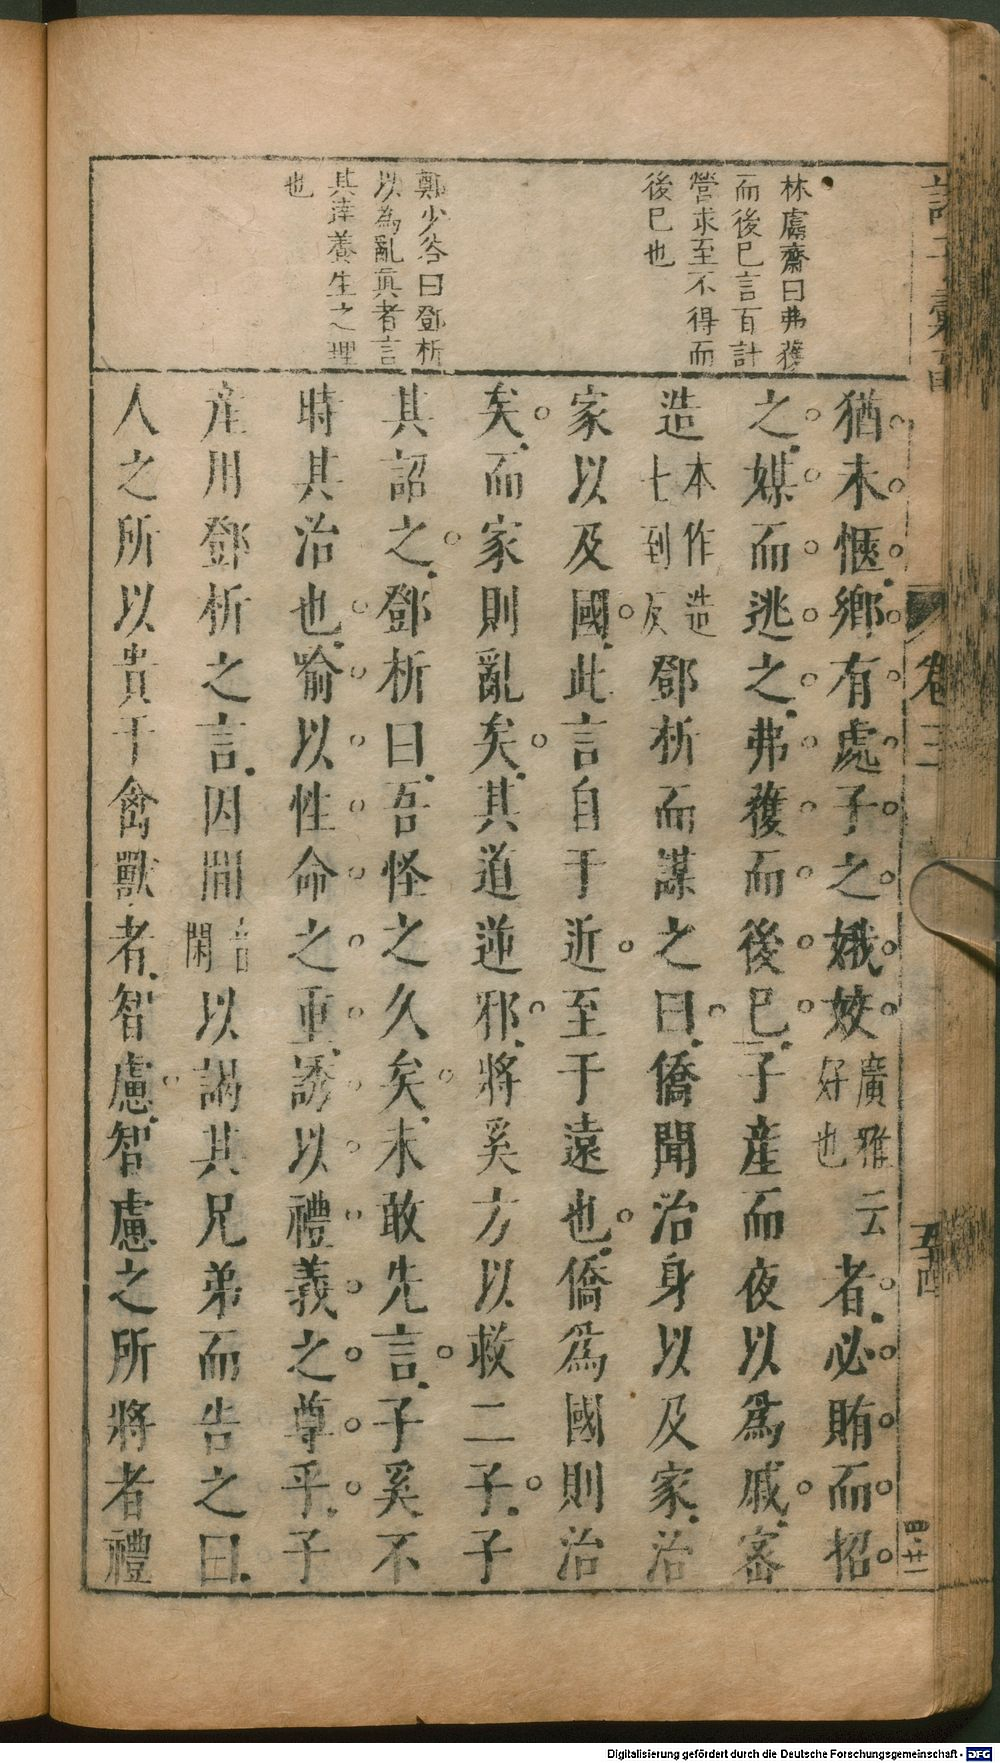 林鬳齋曰弗獲
而後已言百計
營求至不得而
後已也
鄭少谷曰鄧析
以為亂真者言
其達養生之理
也
猶未愜鄉有處子之娥姣廣雅云好也者必賄而招
之媒而逃之弗獲而後已子產而夜以爲戚密
造本作造七到反鄧析而謀之曰僑聞治身以及家治
家以及國此言自于近至于遠也僑爲國則治
矣而家則亂矣其道逆邪將奚方以救二子子
其詔之鄧析曰吾怪之久矣未敢先言子奚不
時其治也喻以性命之重誘以禮義之尊乎子
產用鄧析之言因間音閑以謁其兄弟而告之曰
人之所以貴于禽獸者智慮智慮之所將者禮
卷三
五
Digitalisierung gefördert durch die Deutsche Forschungsgemeinschaft - DFG